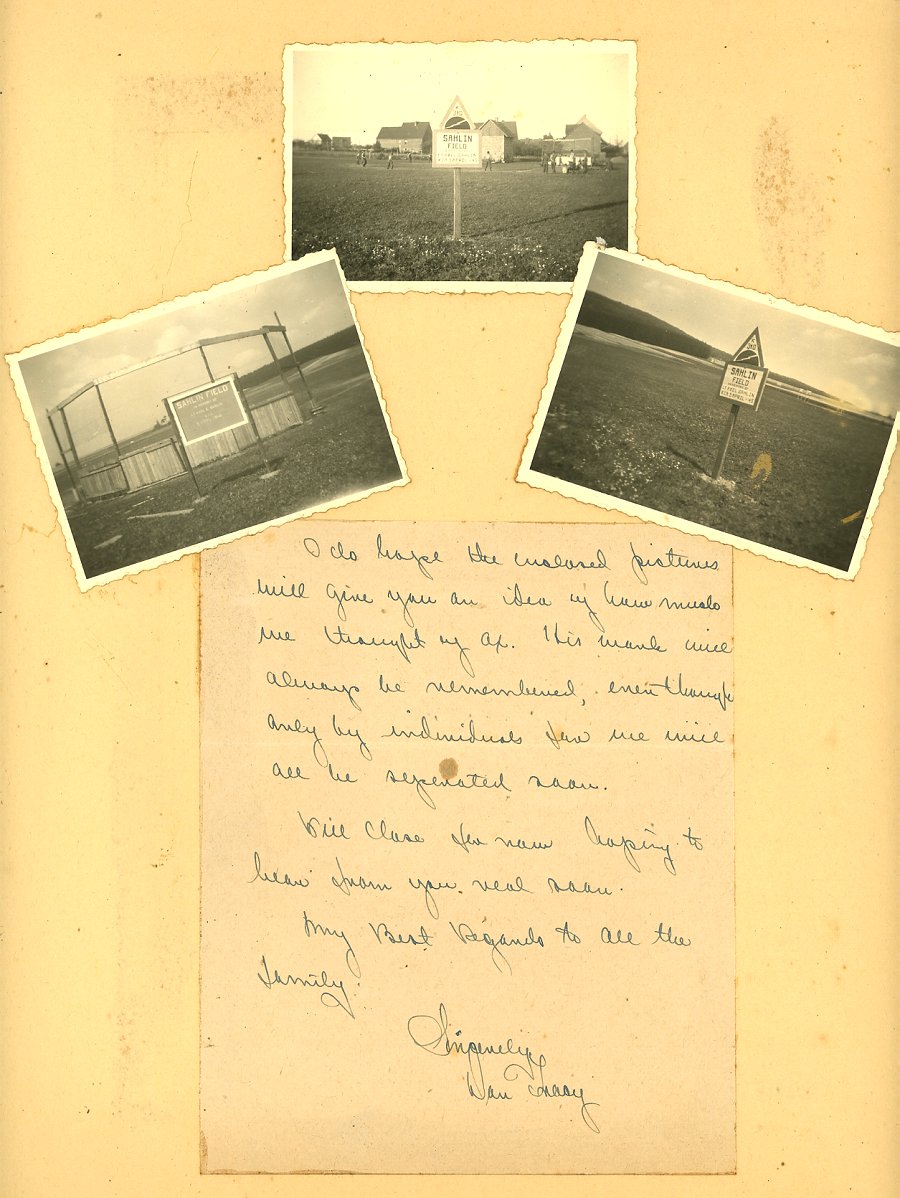 SAHLIN
FIELD
SAHLIN FIELD
SAHLIN
FIELD
LT AXEL SAHLIN
I do hope the enclosed pictures
will give you an idea of how much
we thought of Ax. His mark will
always be remembered, even though
only by individuals for we will
all be seperated soon.
Will close for now hoping to
hear from you real soon.
My Best Regards to all the
family.
Sincerely,
Dan Tracy